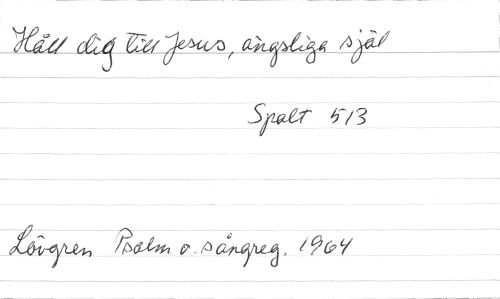 Håll dig till Jesus, ängsliga själ
Spalt 513
Lövgren Psalm o. sångreg. 1964